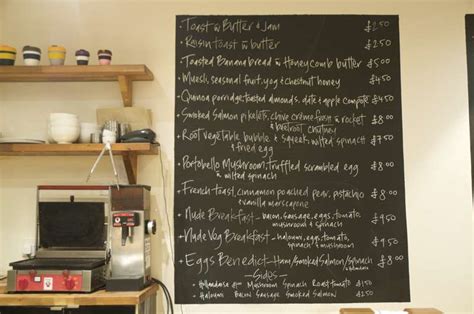 Toast w Butter & Jam £2.50
Raisin toast w butter £2.50
Toasted Banana bread w Honeycomb butter £5.00
Muesli, seasonal fruit, yog & chestnut honey £4.50
Quinoa porridge, toasted almonds, date & apple compote £4.50
Smoked Salmon pikelets, chive crème-fresh w rocket £8.00
& beetroot chutney
Root vegetable bubble & squeek w wilted spinach £7.50
& fried egg
Portobello Mushroom, truffled scrambled egg £8.00
w wilted spinach
French toast, cinnamon poached pear, pistachio £8.00
& vanilla marscapone
Nude Breakfast - bacon, sausage, eggs, tomato, £9.50
mushroom & spinach
Nude Veg Breakfast - eggs, tomato, £9.50
spinach & mushroom
Eggs Benedict - Ham/Smoked Salmon/Spinach £8.00
- Sides -
Mushroom Spinach Roast tomato £1.50
Haloumi Bacon Sausage Smoked Salmon £2.50